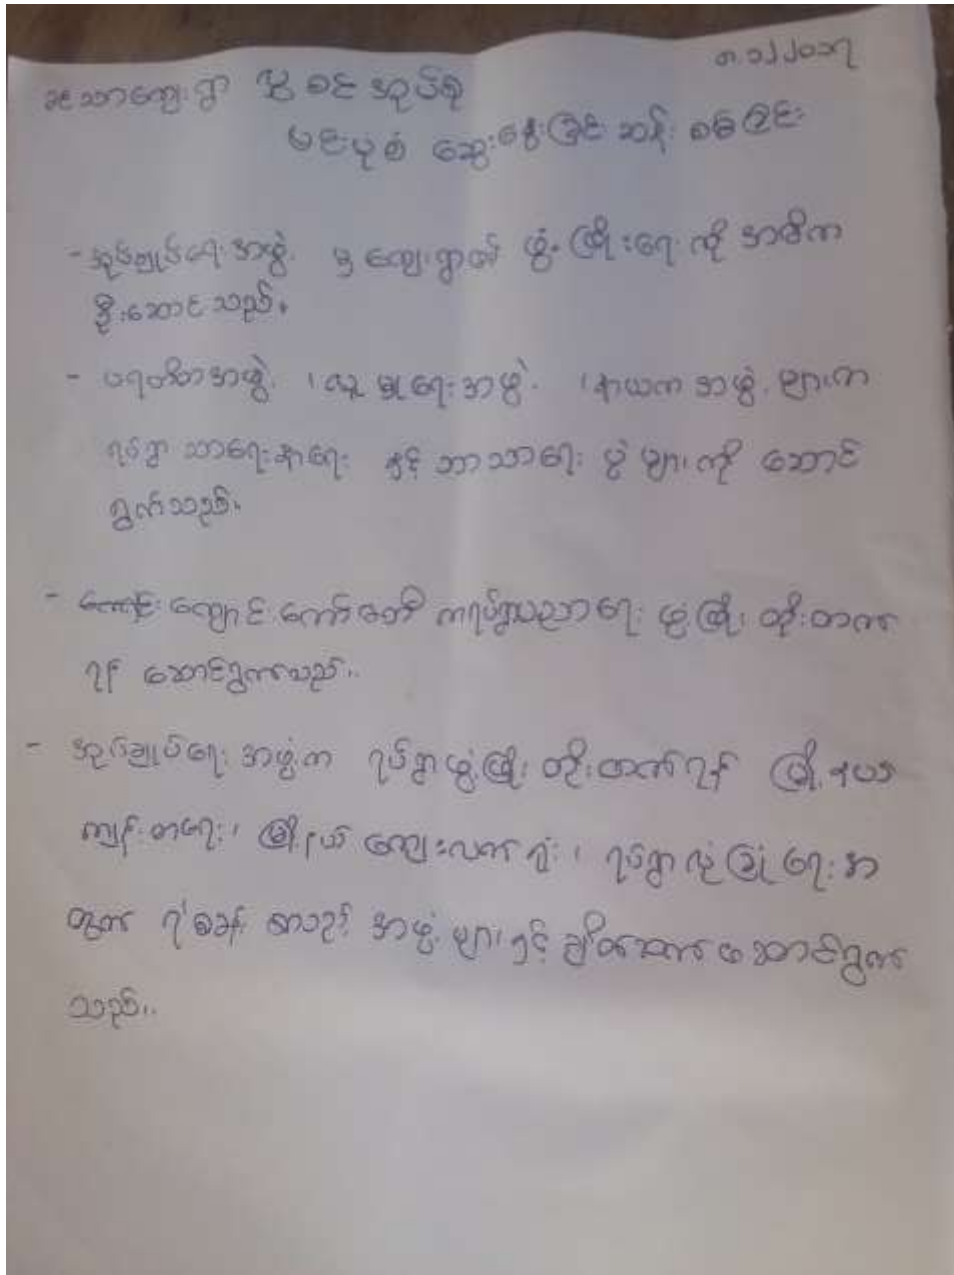 ၈.၁၂.၂၀၁၇
သာကျေးရွာ ဖွဲ့စည်းအုပ်ချုပ်
ပုံစံ ဆွေးနွေးခြင်း ဆန်းစစ်ခြင်း
- အုပ်ချုပ်ရေးအဖွဲ့ မှ ကျေးရွာ၏ ဖွံ့ဖြိုးရေးကို အဓိက
ဦးဆောင်သည်။
- ပရဟိတအဖွဲ့ ၊ လူမှုရေးအဖွဲ့ ၊ နာယက အဖွဲ့ များက
ရပ်ရွာ သာရေးနာရေး နှင့် ဘာသာရေး ပွဲ များကို ဆောင်
ရွက်သည်။
- ကျောင်းကော်မတီ ကရပ်ရွာပညာရေး ဖွံ့ဖြိုး တိုးတက်
ရန် ဆောင်ရွက်သည်။
- အုပ်ချုပ်ရေး အဖွဲ့က ရပ်ရွာဖွံ့ဖြိုး တိုးတက်ရန် မြို့နယ်
ကျန်းမာရေး၊ မြို့နယ် ကျေးလက်ရုံး ၊ ရပ်ရွာလုံခြုံရေး အ
တွက် ရဲစခန်း စသည့် အဖွဲ့ များနှင့် ချိတ်ဆက်ဆောင်ရွက်
သည်။